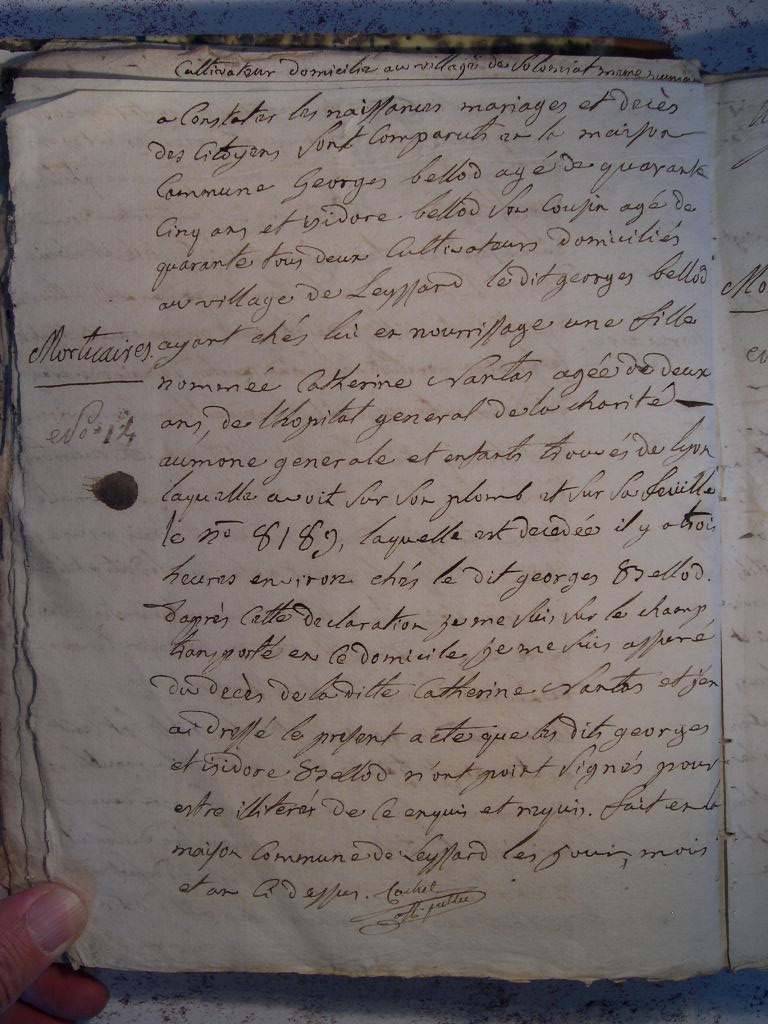 Cultivateur domicilié au village de Solomiat
a Constater les naissances mariages et decès
des Citoyens sont Comparuts en la maison
Commune Georges bellod agé de quarante
Cinq ans et isidore bellod son Cousin agé de
quarante tous deux Cultivateurs domiciliés
au village de Leyssard le dit georges bellod
Mortuaires. ayant chés lui en nourrissage une fille
nommée Catherine Nantas agée de deux
No. 14
ans, de lhopital general de la charité
aumone generale et enfants trouvés de lyon
laquelle avoit sur son plomb et sur sa feuille
le no 8189, laquelle est decedée il y a trois
heures environ chés le dit georges Bellod.
d'après Cette declaration je me suis sur le champ
transporté en Ce domicile, je me suis assuré
du decès de la ditte Catherine Nantas et j'en
ai dressé le present acte que les dits georges
et isidore Bellod n'ont point signés pour
estre illiterés de Ce enquis et requis. fait en la
maison Commune de Leyssard les jour, mois
et an Ci dessus. Cochet
off. public